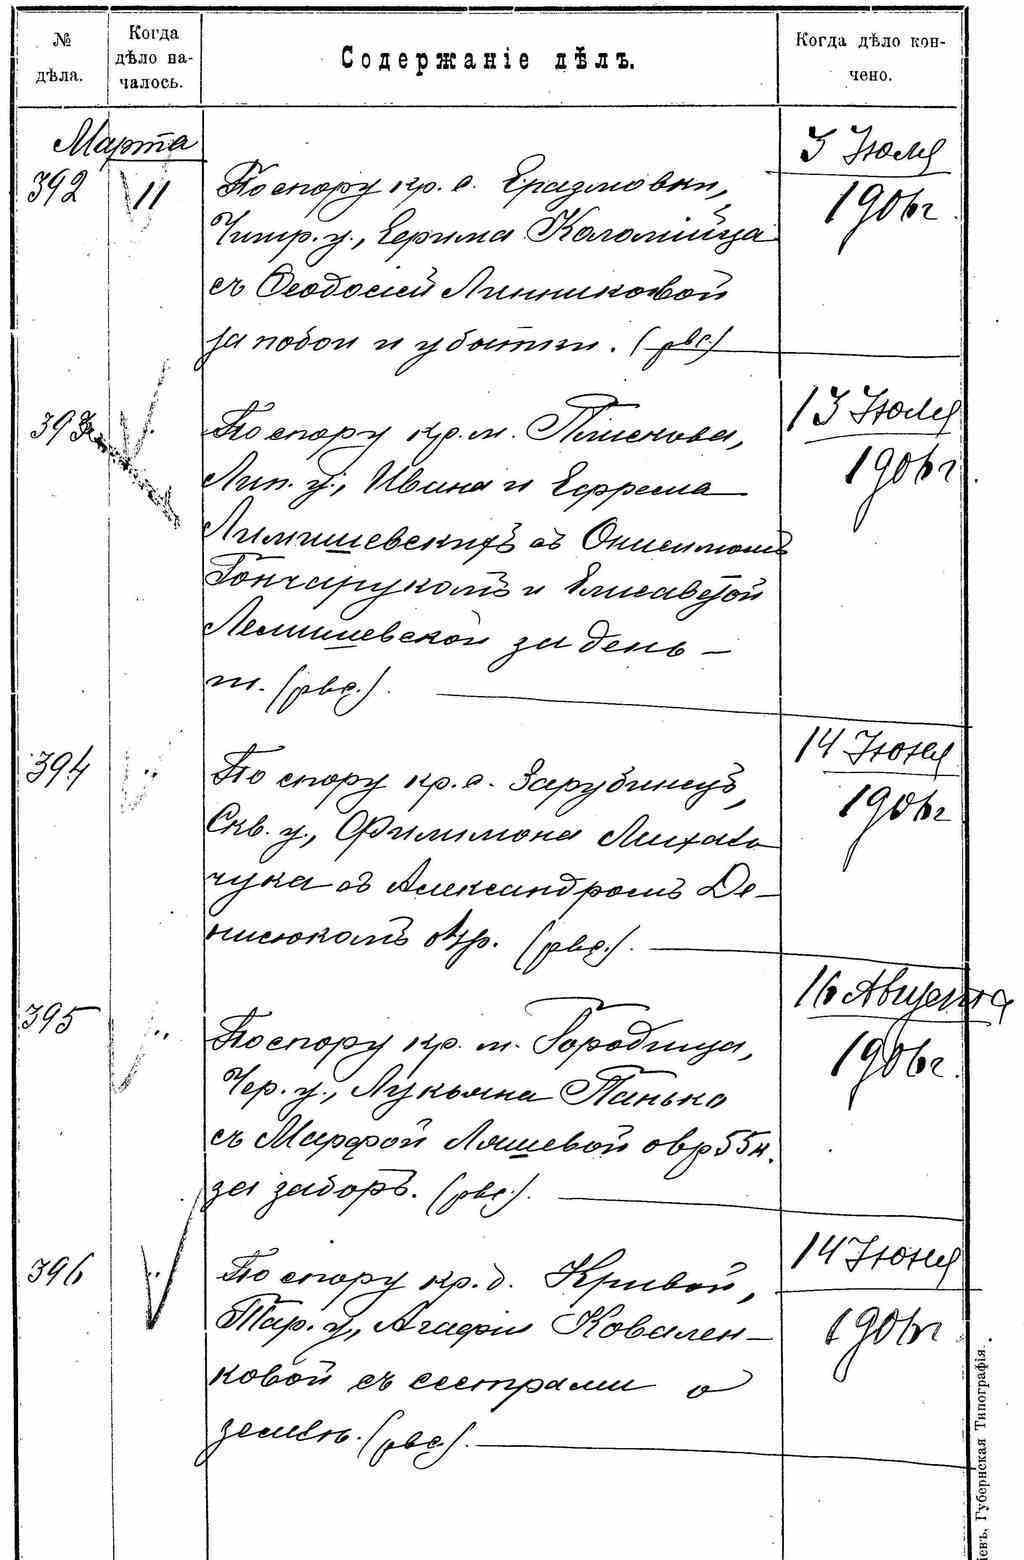 № дѣла.
Когда дѣло началось.
Содержаніе дѣлъ.
Когда дѣло кончено.
Марта
392
11
По спору кр. с. Еразмовки,
Чигир. у., Ефима Коломійца
съ Феодосіей Линниковой
за побои и убытки. (рвс.)
3 Июля
1906 г.
393
По спору кр. м. Пліскова,
Лип. у., Ивана и Ефрема
Лимишевскихъ съ Онисимомъ
Гончарукомъ и Елисаветой
Лемишевской за день-
ги. (рвс.).
13 Июля
1906 г.
394
"
По спору кр. с. Зарубинецъ,
Скв. у., Филимона Михаль
чука съ Александромъ Де-
нисюкомъ (рвс.).
14 Июня
1906 г.
395
"
По спору кр. м. Городища,
Чер. у., Лукьяна Панько
съ Марфой Ляшевой 55 к.
за заборъ. (рвс.).
16 Августа
1906 г.
396
"
По спору кр. д. Кривой,
Тар. у., Агафіи Ковален-
ковой съ сестрами о
землѣ. (рвс.).
14 Июня
1906 г.
іевъ, Губернская Типографія.